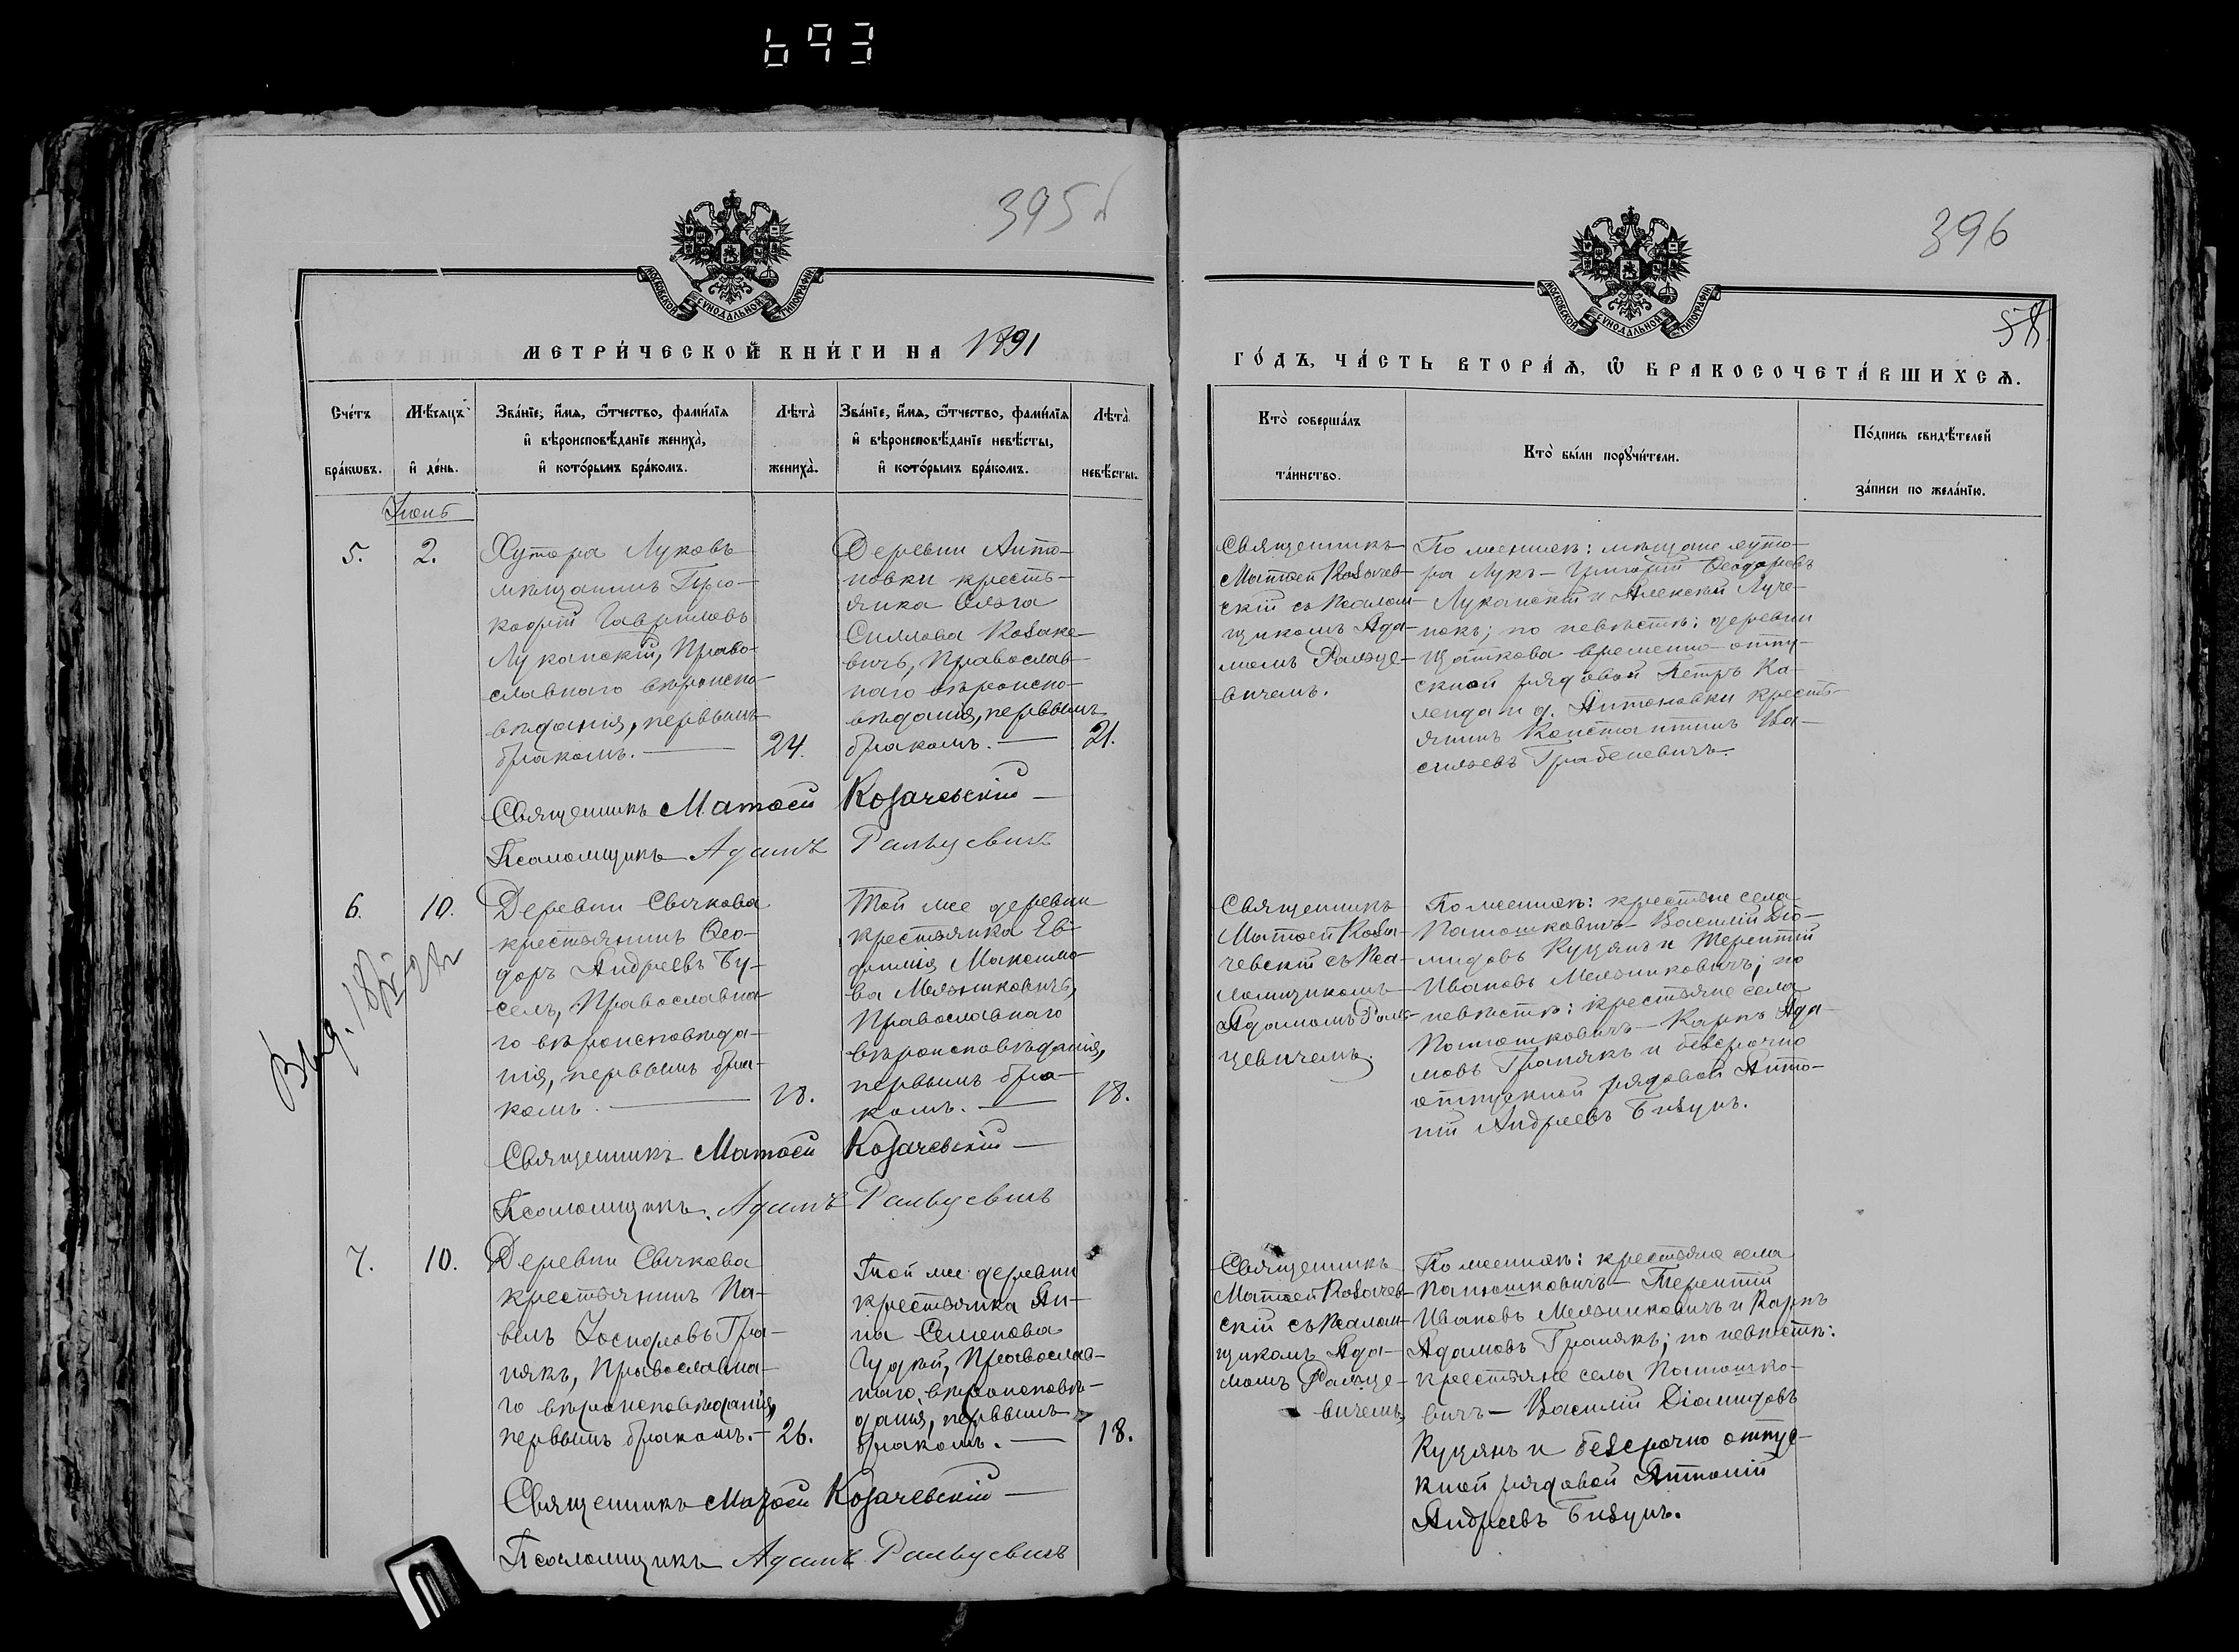 693
395
396
58
МОСКОВСКОЙ СѴНОДАЛЬНОЙ ТИПОГРАФІИ
МОСКОВСКОЙ СѴНОДАЛЬНОЙ ТИПОГРАФІИ
МЕТРИ́ЧЕСКОЙ КНИ́ГИ НА 1891
ГО́ДЪ, ЧА́СТЬ ВТОРА́Ѧ, Ѽ БРАКОСОЧЕТА́ВШИХСѦ.
Сче́тъ бра́кѡвъ.
Мѣ́сяцъ и҆ де́нь.
Зва́нїе, и҆́мѧ, ѻ҆́тчество, фамѝлїѧ
и҆ вѣроисповѣ́данїе жениха̀,
и҆ кото́рымъ бра́комъ.
Лѣта̀ жениха̀.
Зва́нїе, и҆́мѧ, ѻ҆́тчество, фамѝлїѧ
и҆ вѣроисповѣ́данїе невѣ́сты,
и҆ кото́рымъ бра́комъ.
Лѣта̀ невѣ́сты.
Кто̀ соверша́лъ
та́инство.
Кто̀ бы́ли порꙋчи́тели.
По́дпись свидѣ́телей
за́писи по жела́нїю.
Іюнь
5.
2.
Хутора Луковъ
мѣщанинъ
Гавриловъ
Луканскій, Право-
славнаго вѣроиспо-
вѣданія, первымъ
бракомъ.
24.
Деревни Анто-
новки кресть-
янка Ольга
Силлова Козаке-
вичъ, Православ-
наго вѣроиспо-
вѣданія, первымъ
бракомъ.
21.
Священникъ
Матѳей Козачев-
скій съ псалом-
щикомъ Ада-
момъ Ральце-
вичемъ.
По женихѣ: мѣщане хуто-
ра Лукъ - Григорій Ѳеодоровъ
Луканскій и Алексѣй Луче-
нокъ; по невѣстѣ: деревни
временно-отпу-
скной рядовой Петръ Ка-
ленда и д. Антоновки кресть-
янинъ Константинъ Ва-
сильевъ Грабеневичъ.
Священникъ Матѳей Козачевскій
Псаломщикъ Адамъ Ральцевичъ
6.
10.
Деревни Свичкова
крестьянинъ Ѳео-
доръ Андреевъ Бу-
селъ, Православна-
го вѣроисповѣда-
нія, первымъ бра-
комъ.
18.
Той же деревни
крестьянка Ев-
фимія Максимо-
ва Мельниковичъ,
Православнаго
вѣроисповѣданія,
первымъ бра-
комъ.
18.
Священникъ
Матѳей Коза-
чевскій съ пса-
ломщикомъ
Адамомъ Раль-
цевичемъ.
По женихѣ: крестьяне села
Панюшковичъ - Василій Діо-
мидовъ Куцянъ и Терентій
Ивановъ Мельниковичъ; по
невѣстѣ: крестьяне села
Панюшковичъ - Карпъ Ада-
мовъ Гранякъ и безсрочно
отпускной рядовой Анто-
ній Андреевъ Бизунъ.
Священникъ Матѳей Козачевскій
Псаломщикъ Адамъ Ральцевичъ
7.
10.
Деревни Свичкова
крестьянинъ Па-
велъ Іосифовъ Гра-
някъ, Православна-
го вѣроисповѣданія,
первымъ бракомъ.
26.
Той же деревни
крестьянка Ан-
на Семенова
Православ-
наго вѣроисповѣ-
данія, первымъ
бракомъ.
18.
Священникъ
Матѳей Козачев-
скій съ псалом-
щикомъ Ада-
момъ Ральце-
вичемъ.
По женихѣ: крестьяне села
Панюшковичъ - Терентій
Ивановъ Мельниковичъ и Карпъ
Адамовъ Гранякъ; по невѣстѣ:
крестьяне села Панюшко-
вичъ - Василій Діомидовъ
Куцянъ и безсрочно отпус-
кной рядовой Антоній
Андреевъ Бизунъ.
Священникъ Матѳей Козачевскій
Псаломщикъ Адамъ Ральцевичъ